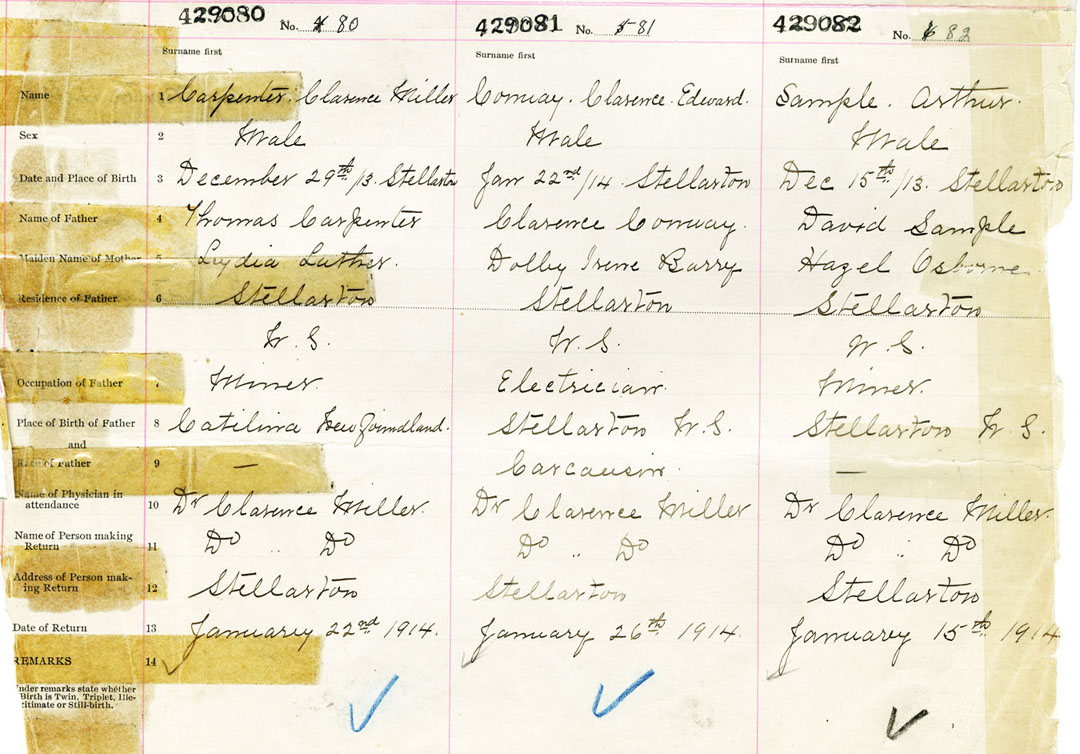 429080 No. 80 429081 No. 81 429082 No. 82
Surname first Surname first Surname first
Name 1 Carpenter. Clarence Miller Conway. Clarence. Edward. Sample. Arthur.
Sex 2 Male Male Male
Date and Place of Birth 3 December 29th/13. Stellarton Jan 22nd/14. Stellarton Dec 15th/13. Stellarton
Name of Father 4 Thomas Carpenter Clarence Conway. David Sample
Maiden Name of Mother 5 Lydia Luther. Dolby Irene Barry Hazel Osborne.
Residence of Father 6 Stellarton Stellarton Stellarton
N. S. N. S. N. S.
Occupation of Father 7 Miner. Electrician. Miner.
Place of Birth of Father 8 Catilina Newfoundland. Stellarton N. S. Stellarton N. S.
and
Race of Father 9 — Carcausin. —
Name of Physician in
attendance 10 Dr Clarence Miller. Dr Clarence Miller Dr Clarence Miller.
Name of Person making
Return 11 Do " Do Do " Do Do " Do
Address of Person mak-
ing Return 12 Stellarton Stellarton Stellarton
Date of Return 13 Januarey 22nd 1914. January 26th 1914. Januarey 15th 1914
REMARKS 14
Under remarks state whether
Birth is Twin, Triplet, Ille-
gitimate or Still-birth.